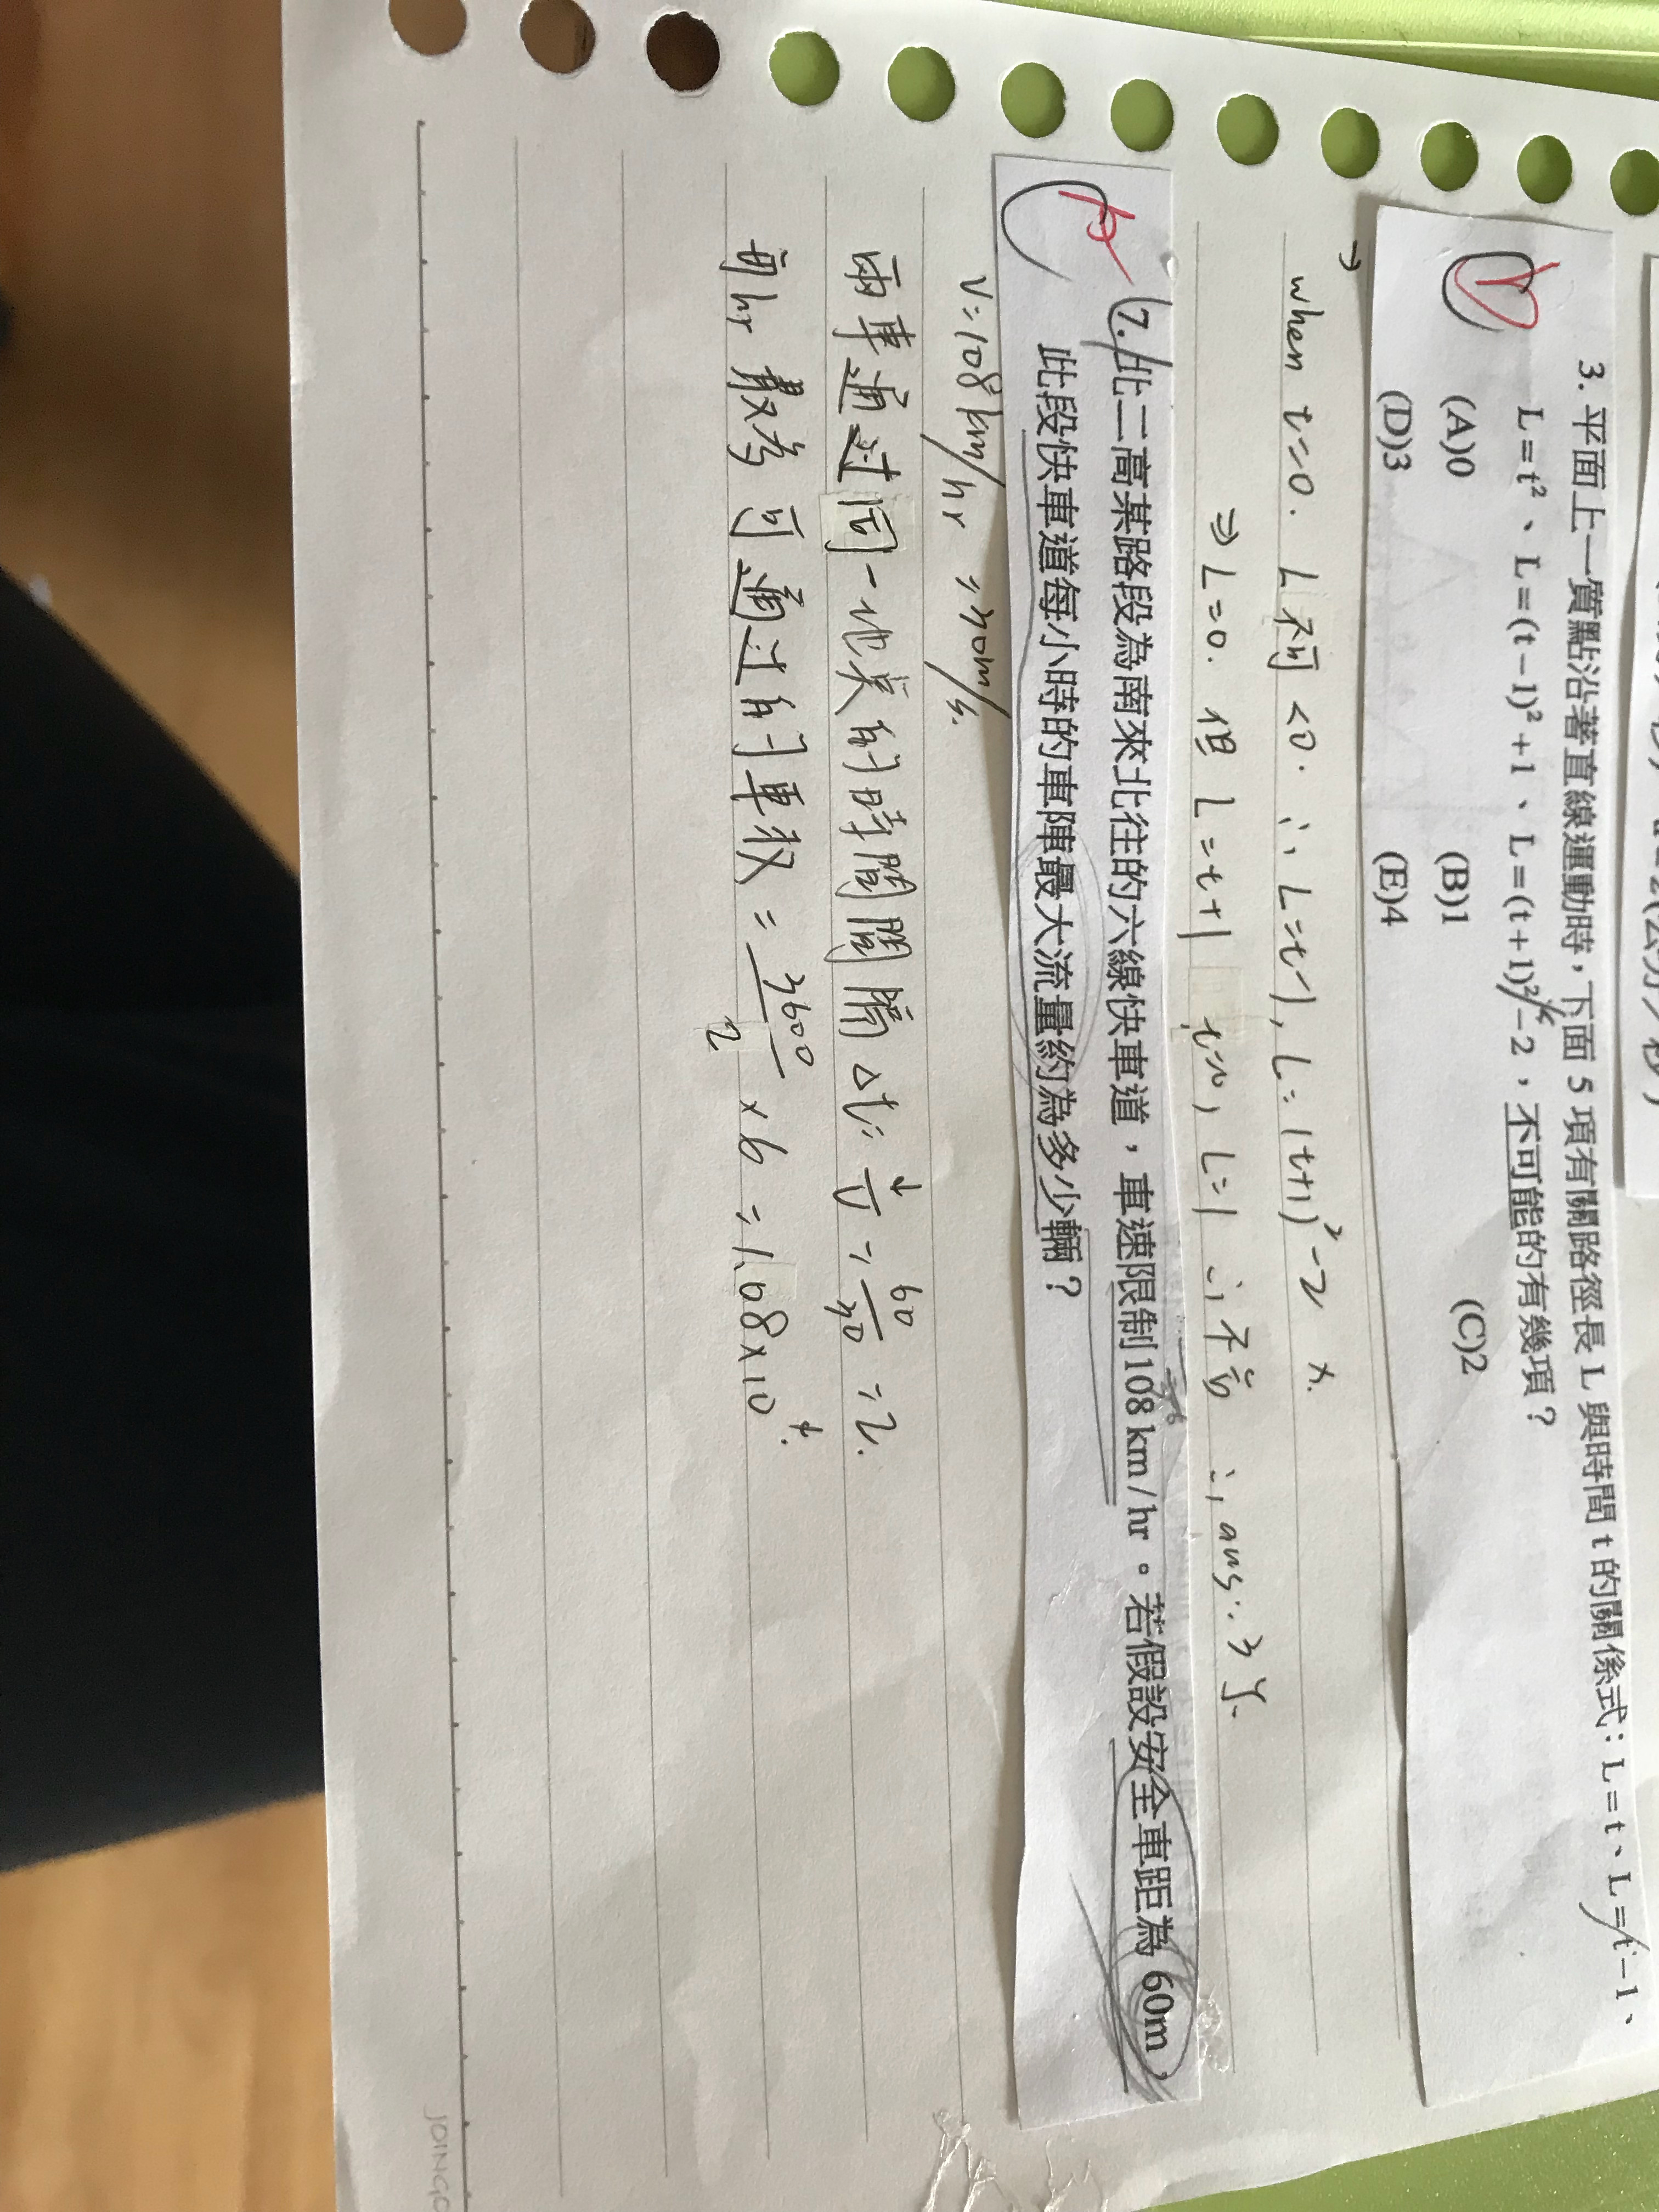 3. 平面上一質點沿著直線運動時，下面 5 項有關路徑長 L 與時間 t 的關係式：L=t、L=t-1、
L=t²、L=(t-1)²+1、L=(t+1)²-2，不可能的有幾項？
(A)0 (B)1 (C)2
(D)3 (E)4
when t=0. L 不可 <0. ∴ L=t-1, L=(t+1)²-2 x.
⇒ L=0. 但 L=t+1 t=0, L=1 ∴ 不符 ∴ ans: 3 個.
7. 北二高某路段為南來北往的六線快車道，車速限制108 km/hr。若假設安全車距為 60m，
此段快車道每小時的車陣最大流量約為多少輛？
V=108 km/hr =30m/s.
兩車通过同一地点的時間間隔 Δt= = 60/30 =2.
每hr 最多可通过的車数 = 3600/2 ×6 =1.08×10⁴.
JOINGO